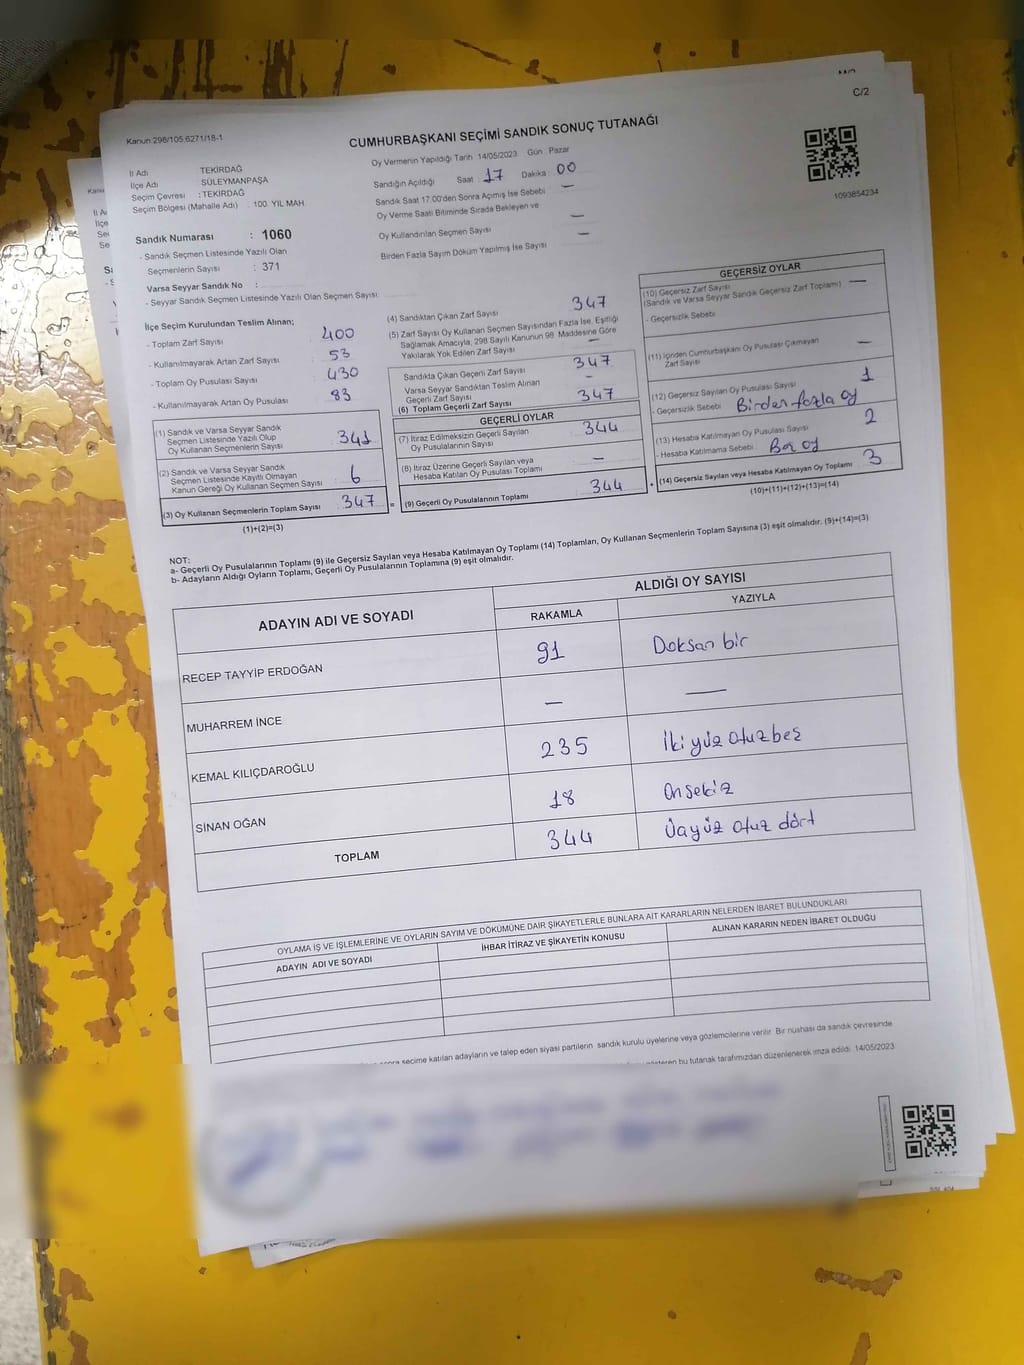 C/2
Kanun 298/105.6271/18-1
CUMHURBAŞKANI SEÇİMİ SANDIK SONUÇ TUTANAĞI
İl Adı TEKİRDAĞ
İlçe Adı SÜLEYMANPAŞA
Seçim Çevresi : TEKİRDAĞ
Seçim Bölgesi (Mahalle Adı) : 100. YIL MAH.
Oy Vermenin Yapıldığı Tarih 14/05/2023 Gün : Pazar
Sandığın Açıldığı Saat 17 Dakika : 00
Sandık Saat 17.00'den Sonra Açılmış İse Sebebi —
Oy Verme Saati Bitiminde Sırada Bekleyen ve
Oy Kullandırılan Seçmen Sayısı —
Birden Fazla Sayım Döküm Yapılmış İse Sayısı —
1093854234
Sandık Numarası : 1060
- Sandık Seçmen Listesinde Yazılı Olan
Seçmenlerin Sayısı : 371
Varsa Seyyar Sandık No :
- Seyyar Sandık Seçmen Listesinde Yazılı Olan Seçmen Sayısı:
İlçe Seçim Kurulundan Teslim Alınan;
- Toplam Zarf Sayısı : 400
- Kullanılmayarak Artan Zarf Sayısı : 53
- Toplam Oy Pusulası Sayısı : 430
- Kullanılmayarak Artan Oy Pusulası : 83
(1) Sandık ve Varsa Seyyar Sandık
Seçmen Listesinde Yazılı Olup
Oy Kullanan Seçmenlerin Sayısı : 341
(2) Sandık ve Varsa Seyyar Sandık
Seçmen Listesinde Kayıtlı Olmayan
Kanun Gereği Oy Kullanan Seçmen Sayısı : 6
(3) Oy Kullanan Seçmenlerin Toplam Sayısı : 347
(1)+(2)=(3)
(4) Sandıktan Çıkan Zarf Sayısı 347
(5) Zarf Sayısı Oy Kullanan Seçmen Sayısından Fazla İse, Eşitliği
Sağlamak Amacıyla; 298 Sayılı Kanunun 98. Maddesine Göre
Yakılarak Yok Edilen Zarf Sayısı —
Sandıkta Çıkan Geçerli Zarf Sayısı 347
Varsa Seyyar Sandıktan Teslim Alınan
Geçerli Zarf Sayısı : -
(6) Toplam Geçerli Zarf Sayısı : 347
GEÇERLİ OYLAR
(7) İtiraz Edilmeksizin Geçerli Sayılan
Oy Pusulalarının Sayısı : 344
(8) İtiraz Üzerine Geçerli Sayılan veya
Hesaba Katılan Oy Pusulası Toplamı : —
= (9) Geçerli Oy Pusulalarının Toplamı : 344
GEÇERSİZ OYLAR
(10) Geçersiz Zarf Sayısı
(Sandık ve Varsa Seyyar Sandık Geçersiz Zarf Toplamı) —
- Geçersizlik Sebebi
(11) İçinden Cumhurbaşkanı Oy Pusulası Çıkmayan
Zarf Sayısı —
(12) Geçersiz Sayılan Oy Pusulası Sayısı 1
- Geçersizlik Sebebi Birden fazla oy
(13) Hesaba Katılmayan Oy Pusulası Sayısı 2
- Hesaba Katılmama Sebebi : Boş oy
(14) Geçersiz Sayılan veya Hesaba Katılmayan Oy Toplamı : 3
(10)+(11)+(12)+(13)=(14)
NOT:
a- Geçerli Oy Pusulalarının Toplamı (9) ile Geçersiz Sayılan veya Hesaba Katılmayan Oy Toplamı (14) Toplamları, Oy Kullanan Seçmenlerin Toplam Sayısına (3) eşit olmalıdır. (9)+(14)=(3)
b- Adayların Aldığı Oyların Toplamı, Geçerli Oy Pusulalarının Toplamına (9) eşit olmalıdır.
ADAYIN ADI VE SOYADI ALDIĞI OY SAYISI
RAKAMLA YAZIYLA
RECEP TAYYİP ERDOĞAN 91 Doksan bir
MUHARREM İNCE — —
KEMAL KILIÇDAROĞLU 235 İki yüz otuzbeş
SİNAN OĞAN 18 Onsekiz
TOPLAM 344 Üçyüz otuz dört
OYLAMA İŞ VE İŞLEMLERİNE VE OYLARIN SAYIM VE DÖKÜMÜNE DAİR ŞİKAYETLERLE BUNLARA AİT KARARLARIN NELERDEN İBARET BULUNDUKLARI
ADAYIN ADI VE SOYADI İHBAR İTİRAZ VE ŞİKAYETİN KONUSU ALINAN KARARIN NEDEN İBARET OLDUĞU
seçime katılan adayların ve talep eden siyasi partilerin sandık kurulu üyelerine veya gözlemcilerine verilir. Bir nüshası da sandık çevresinde
bu tutanak tarafımızdan düzenlenerek imza edildi. 14/05/2023